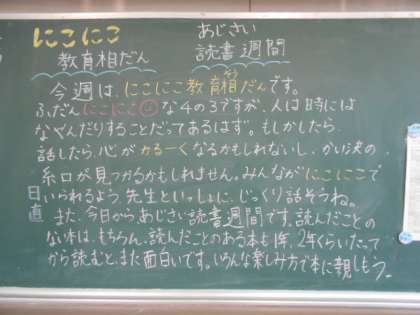 にこにこ
教育相だん
あじさい
読書週間
今週は、にこにこ教育相だんです。
そう
ふだんにこにこな4の3ですが、人は時には
なやんだりすることだってあるはず。もしかしたら、
話したら、心がかるーくなるかもしれないし、かい決の
糸口が見つかるかもしれません。みんながにこにこで
いられるよう、先生といっしょに、じっくり話そうね。
また、今日から、あじさい読書週間です。読んだことの
ない本は、もちろん、読んだことのある本も1年、2年くらいたって
から読むと、また面白いです。いろんな楽しみ方で本に親しもう。
日直